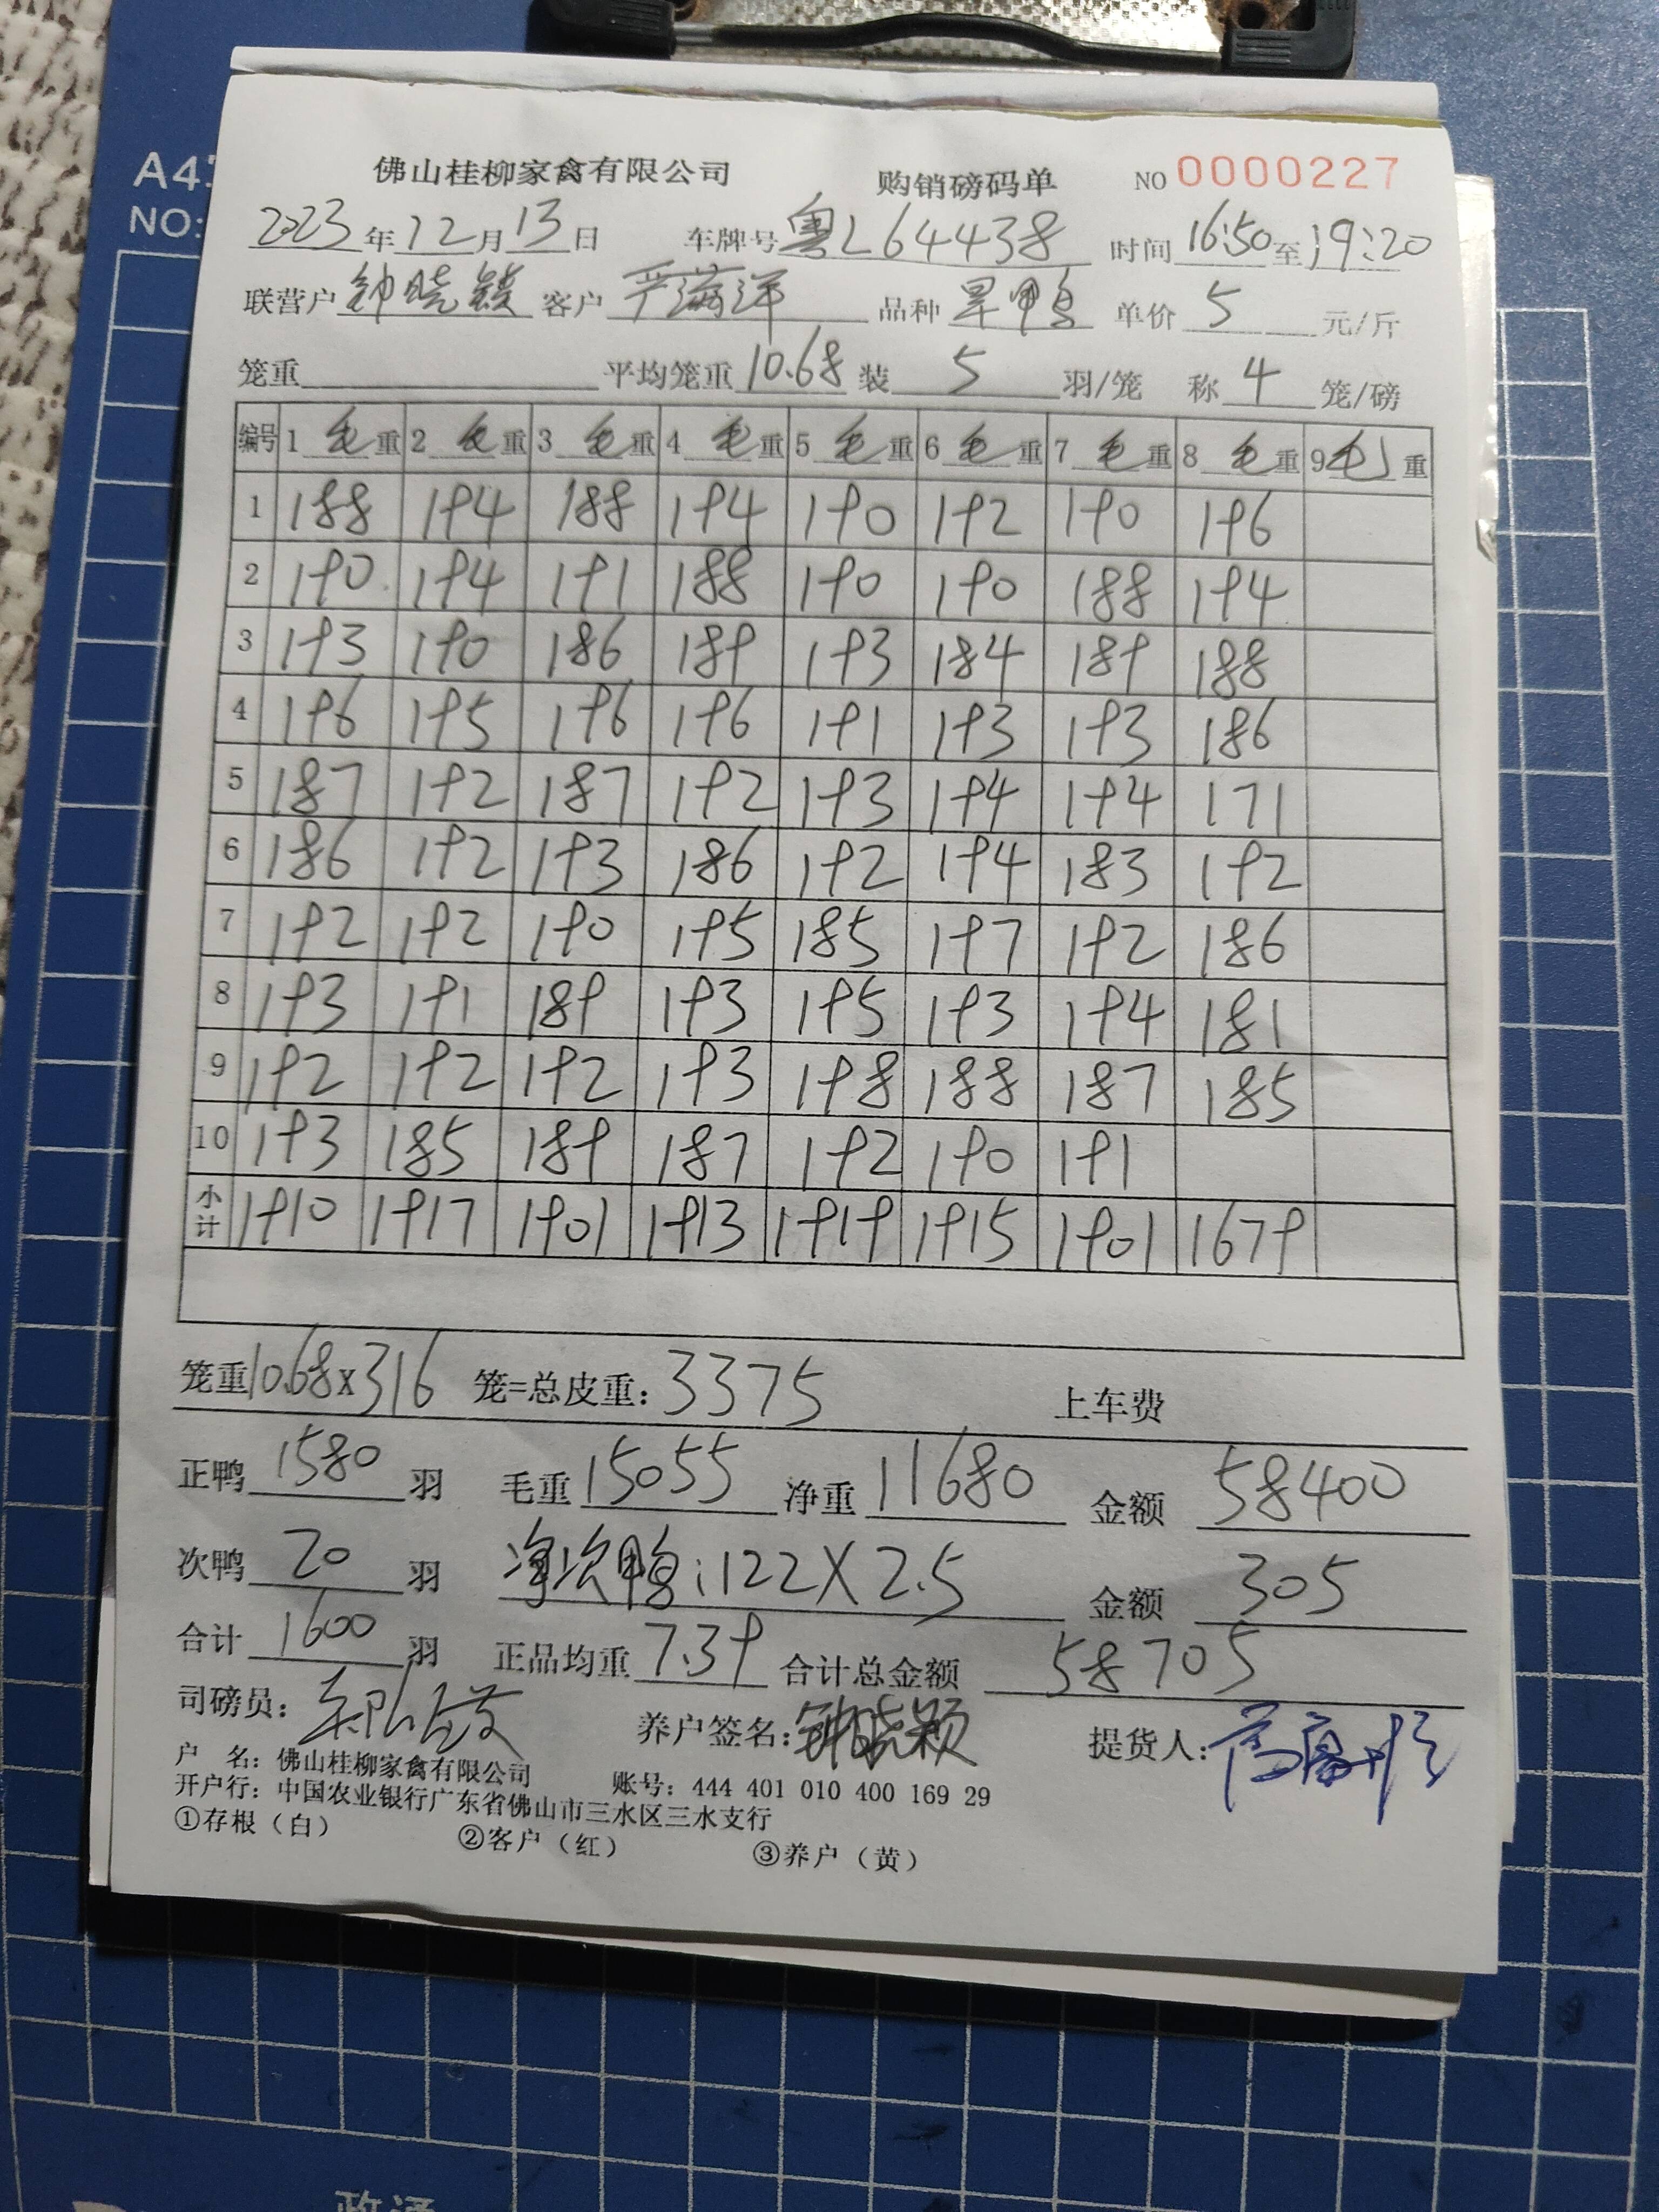 佛山桂柳家禽有限公司 购销磅码单 NO 0000227
2023 年 12 月 13 日 车牌号 粤L64438 时间 16:50 至 19:20
联营户 钟晓 客户 严满洋 品种 旱鸭 单价 5 元/斤
笼重 平均笼重 10.68 装 5 羽/笼 称 4 笼/磅
编号 1 毛重 2 毛重 3 毛重 4 毛重 5 毛重 6 毛重 7 毛重 8 毛重 9 毛重
1 188 194 188 194 190 192 190 196
2 190 194 191 188 190 190 188 194
3 193 190 186 189 193 184 189 188
4 196 195 196 196 191 193 193 186
5 187 192 187 192 193 194 194 171
6 186 192 193 186 192 194 183 192
7 192 192 190 195 185 197 192 186
8 193 191 189 193 195 193 194 181
9 192 192 192 193 198 188 187 185
10 193 185 189 187 192 190 191
小计 1910 1917 1901 1913 1919 1915 1901 1679
笼重 10.68 x 316 笼=总皮重: 3375 上车费
正鸭 1580 羽 毛重 15055 净重 11680 金额 58400
次鸭 20 羽 净次鸭: 122 X 2.5 金额 305
合计 1600 羽 正品均重 7.39 合计总金额 58705
司磅员: 养户签名: 钟晓颖 提货人:
户 名: 佛山桂柳家禽有限公司 账号: 444 401 010 400 169 29
开户行: 中国农业银行广东省佛山市三水区三水支行
①存根（白） ②客户（红） ③养户（黄）
A4
NO:
政通